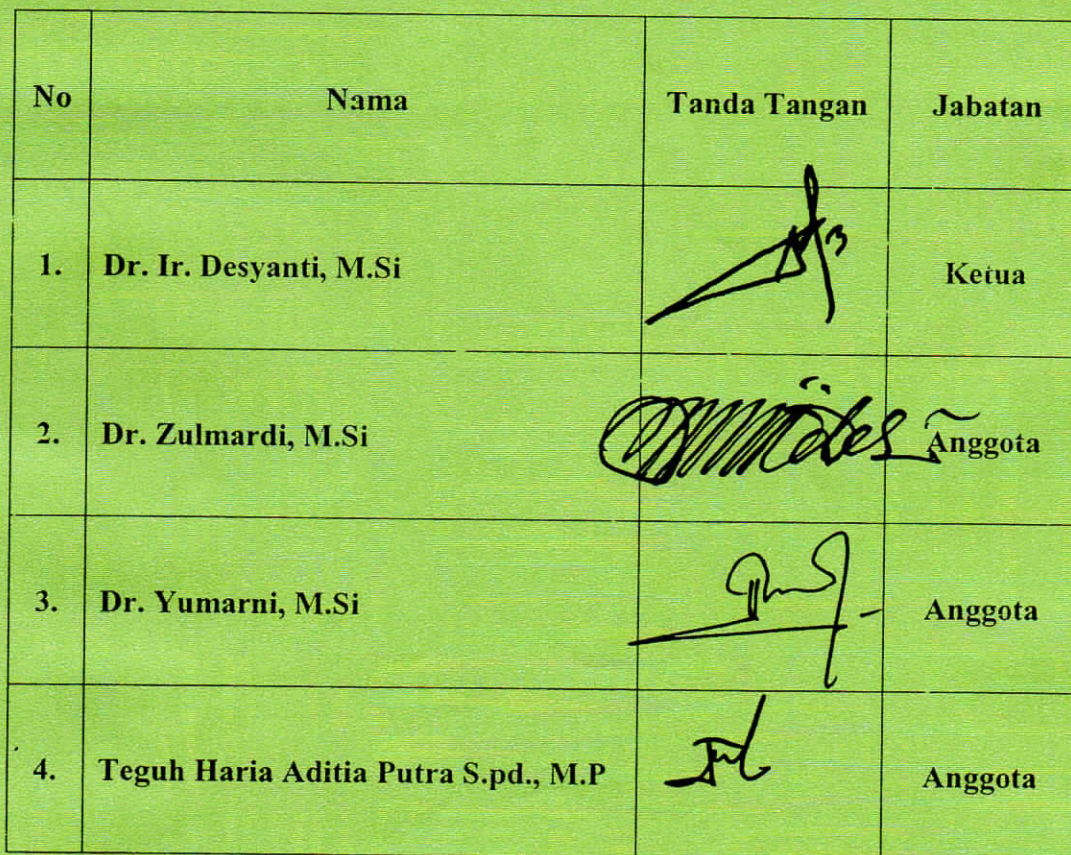 No Nama Tanda Tangan Jabatan
1. Dr. Ir. Desyanti, M.Si Ketua
2. Dr. Zulmardi, M.Si Anggota
3. Dr. Yumarni, M.Si Anggota
4. Teguh Haria Aditia Putra S.pd., M.P Anggota